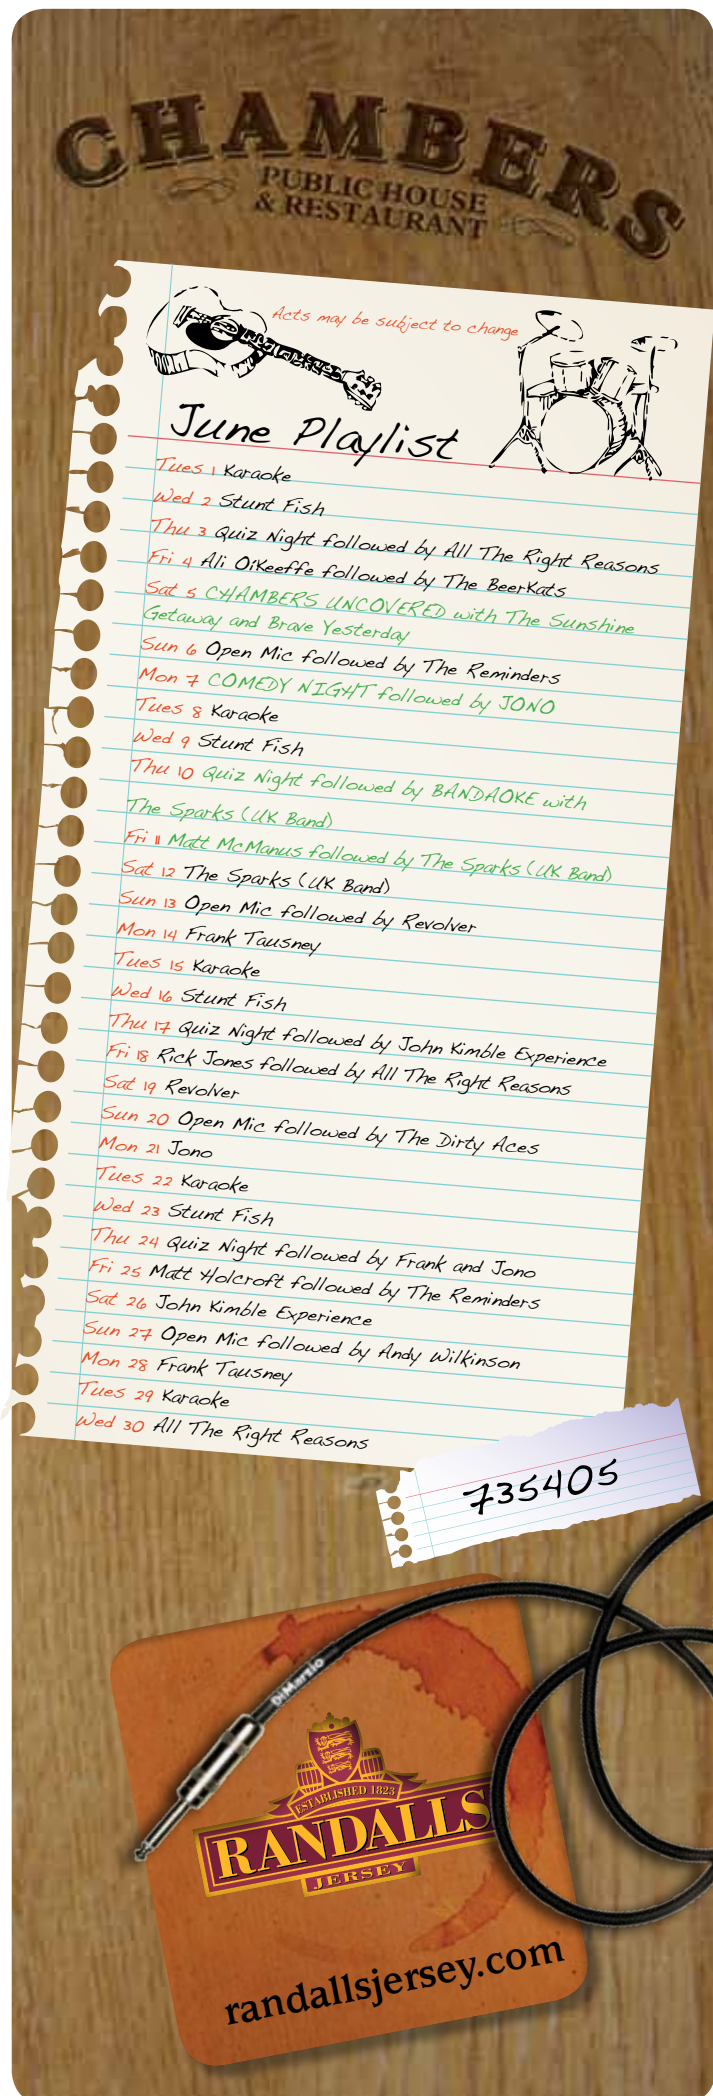 CHAMBERS
PUBLIC HOUSE
& RESTAURANT
Acts may be subject to change
June Playlist
Tues 1 Karaoke
Wed 2 Stunt Fish
Thu 3 Quiz Night followed by All The Right Reasons
Fri 4 Ali OiKeeffe followed by The BeerKats
Sat 5 CHAMBERS UNCOVERED with The Sunshine
Getaway and Brave Yesterday
Sun 6 Open Mic followed by The Reminders
Mon 7 COMEDY NIGHT followed by JONO
Tues 8 Karaoke
Wed 9 Stunt Fish
Thu 10 Quiz Night followed by BANDAOKE with
The Sparks (UK Band)
Fri 11 Matt McManus followed by The Sparks (UK Band)
Sat 12 The Sparks (UK Band)
Sun 13 Open Mic followed by Revolver
Mon 14 Frank Tausney
Tues 15 Karaoke
Wed 16 Stunt Fish
Thu 17 Quiz Night followed by John Kimble Experience
Fri 18 Rick Jones followed by All The Right Reasons
Sat 19 Revolver
Sun 20 Open Mic followed by The Dirty Aces
Mon 21 Jono
Tues 22 Karaoke
Wed 23 Stunt Fish
Thu 24 Quiz Night followed by Frank and Jono
Fri 25 Matt Holcroft followed by The Reminders
Sat 26 John Kimble Experience
Sun 27 Open Mic followed by Andy Wilkinson
Mon 28 Frank Tausney
Tues 29 Karaoke
Wed 30 All The Right Reasons
735405
DiMarzio
ESTABLISHED 1823
RANDALLS
JERSEY
randallsjersey.com